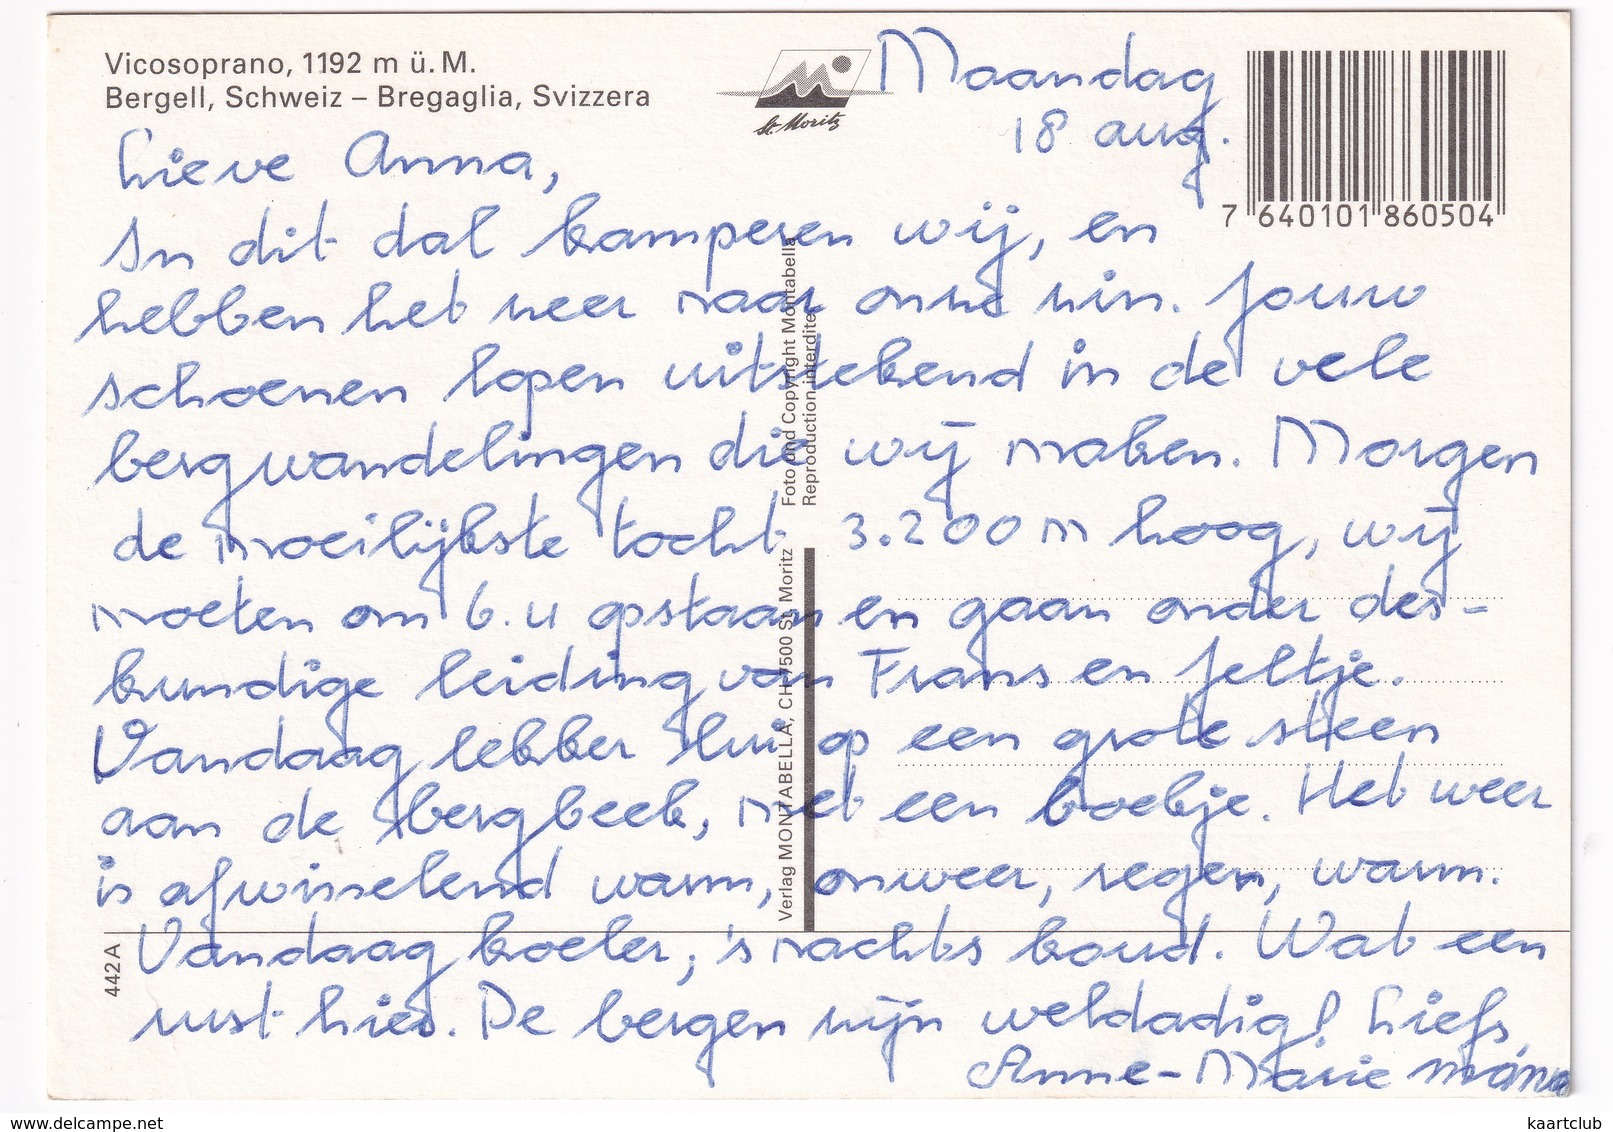 Vicosoprano, 1192 m ü. M.
Bergell, Schweiz – Bregaglia, Svizzera
St. Moritz
Maandag
18 aug.
7 640101 860504
Lieve Anna,
In dit dal kamperen wij, en
hebben het zeer naar onze zin. Jouw
schoenen lopen uitstekend in de vele
bergwandelingen die wij maken. Morgen
de moeilijkste tocht 3.200 m hoog, wij
moeten om 6.u opstaan en gaan onder des-
kundige leiding van Frans en Jeltje.
Vandaag lekker lui op een grote steen
aan de bergbeek, met een boekje. Het weer
is afwisselend warm, onweer, regen, warm.
Vandaag koeler, 's nachts koud. Wat een
rust hier. De bergen zijn weldadig! Liefs,
Anne-Marie
Foto und Copyright Montabella
Reproduction interdite
Verlag MONTABELLA, CH-7500 St. Moritz
442 A
www.delcampe.net
kaartclub